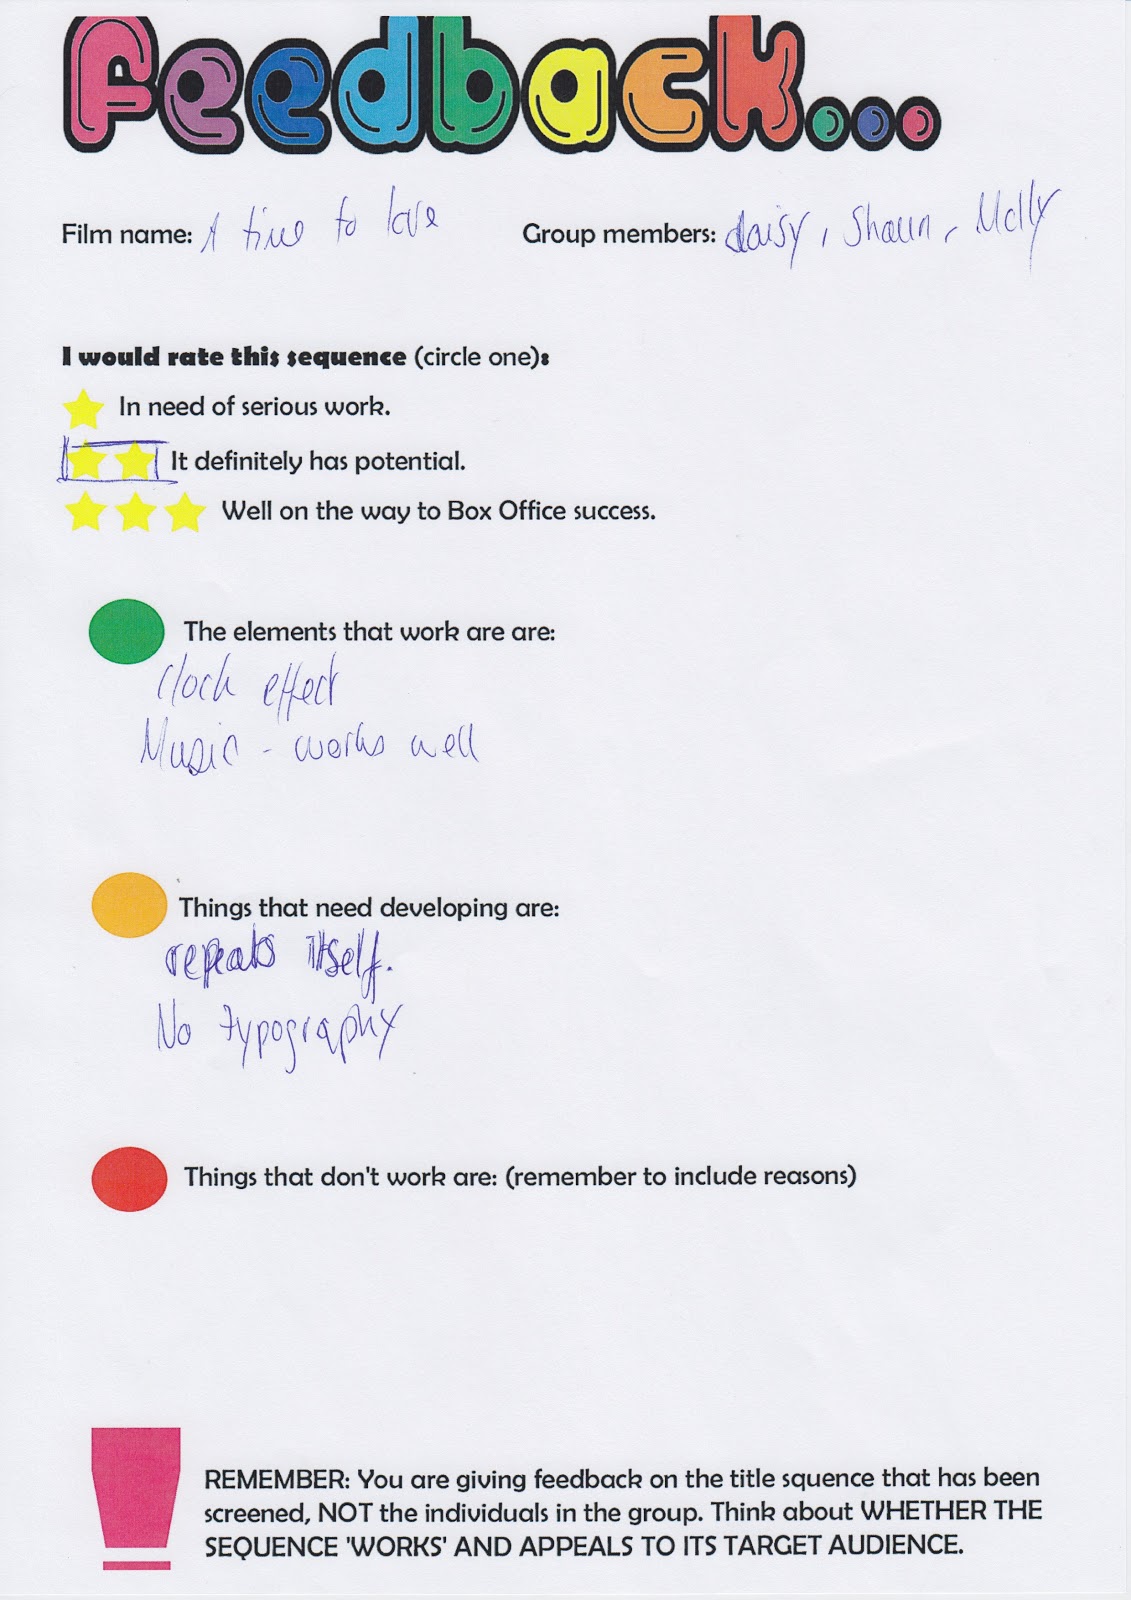 feedback...
Film name: A time to love Group members: daisy, Shaun, Molly
I would rate this sequence (circle one):
In need of serious work.
It definitely has potential.
Well on the way to Box Office success.
The elements that work are are:
Clock effect
Music - works well
Things that need developing are:
repeats itself.
No typography
Things that don't work are: (remember to include reasons)
REMEMBER: You are giving feedback on the title squence that has been
screened, NOT the individuals in the group. Think about WHETHER THE
SEQUENCE 'WORKS' AND APPEALS TO ITS TARGET AUDIENCE.